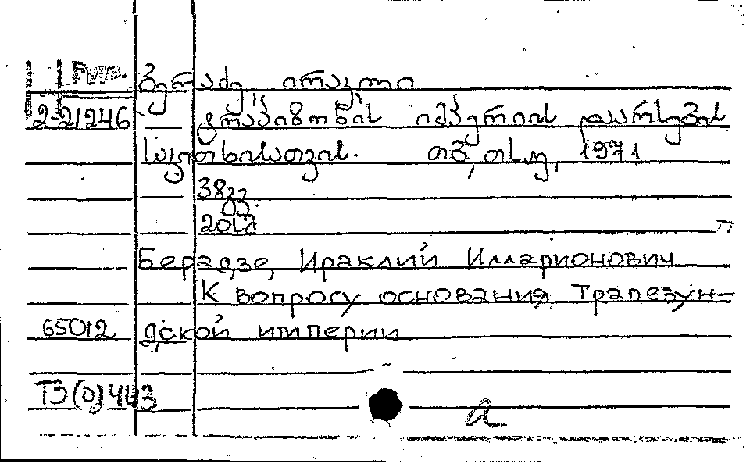 ბერაძე, ირაკლი
2-21246 ტრაპიზონის იმპერიის დაარსების
საკითხისათვის. თბ., თსუ, 1971
38 გვ.
20სმ
Берадзе, Ираклий Илларионович
К вопросу основания Трапезун-
65012 дской империи
ТЗ(0)443
а